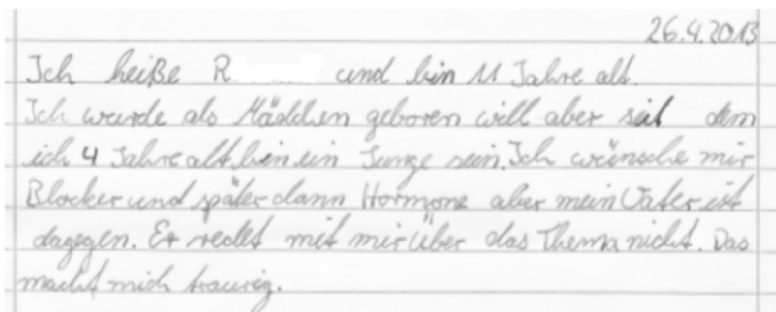 26.4.2013
Ich heiße R. und bin 11 Jahre alt.
Ich wurde als Mädchen geboren will aber seit dem
ich 4 Jahre alt bin ein Junge sein. Ich wünsche mir
Blocker und später dann Hormone aber mein Vater ist
dagegen. Er redet mit mir über das Thema nicht. Das
macht mich traurig.